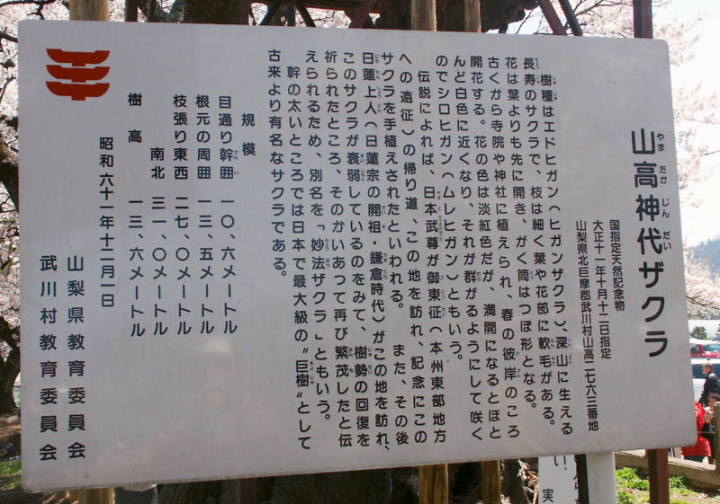 山高神代ザクラ
やま たか じん だい
国指定天然記念物
大正十一年十月十二日指定
山梨県北巨摩郡武川村山高二七六三番地
樹種はエドヒガン（ヒガンザクラ）、深山に生える
長寿のサクラで、枝は細く葉や花部に軟毛がある。
花は葉よりも先に開き、がく筒はつぼ形となる。
古くから寺院や神社に植えられ、春の彼岸のころ
開花する。花の色は淡紅色だが、満開になるとほと
んど白色に近くなり、それが群がるようにして咲く
のでシロヒガン（ムレヒガン）ともいう。
伝説によれば、日本武尊が御東征（本州東部地方
への遠征）の帰り道、この地を訪れ、記念にこの
サクラを手植えされたといわれる。 また、その後
日蓮上人（日蓮宗の開祖・鎌倉時代）がこの地を訪れ、
このサクラが衰弱しているのをみて、樹勢の回復を
祈られたところ、そのかいあって再び繁茂したと伝
えられるため、別名を「妙法ザクラ」ともいう。
幹の太いところでは日本で最大級の〝巨樹〟として
古来より有名なサクラである。
規模
目通り幹囲 一〇、六メートル
根元の周囲 一三、五メートル
枝張り東西 二七、〇メートル
南北 三一、〇メートル
樹高 一三、六メートル
昭和六十一年十二月一日
山梨県教育委員会
武川村教育委員会